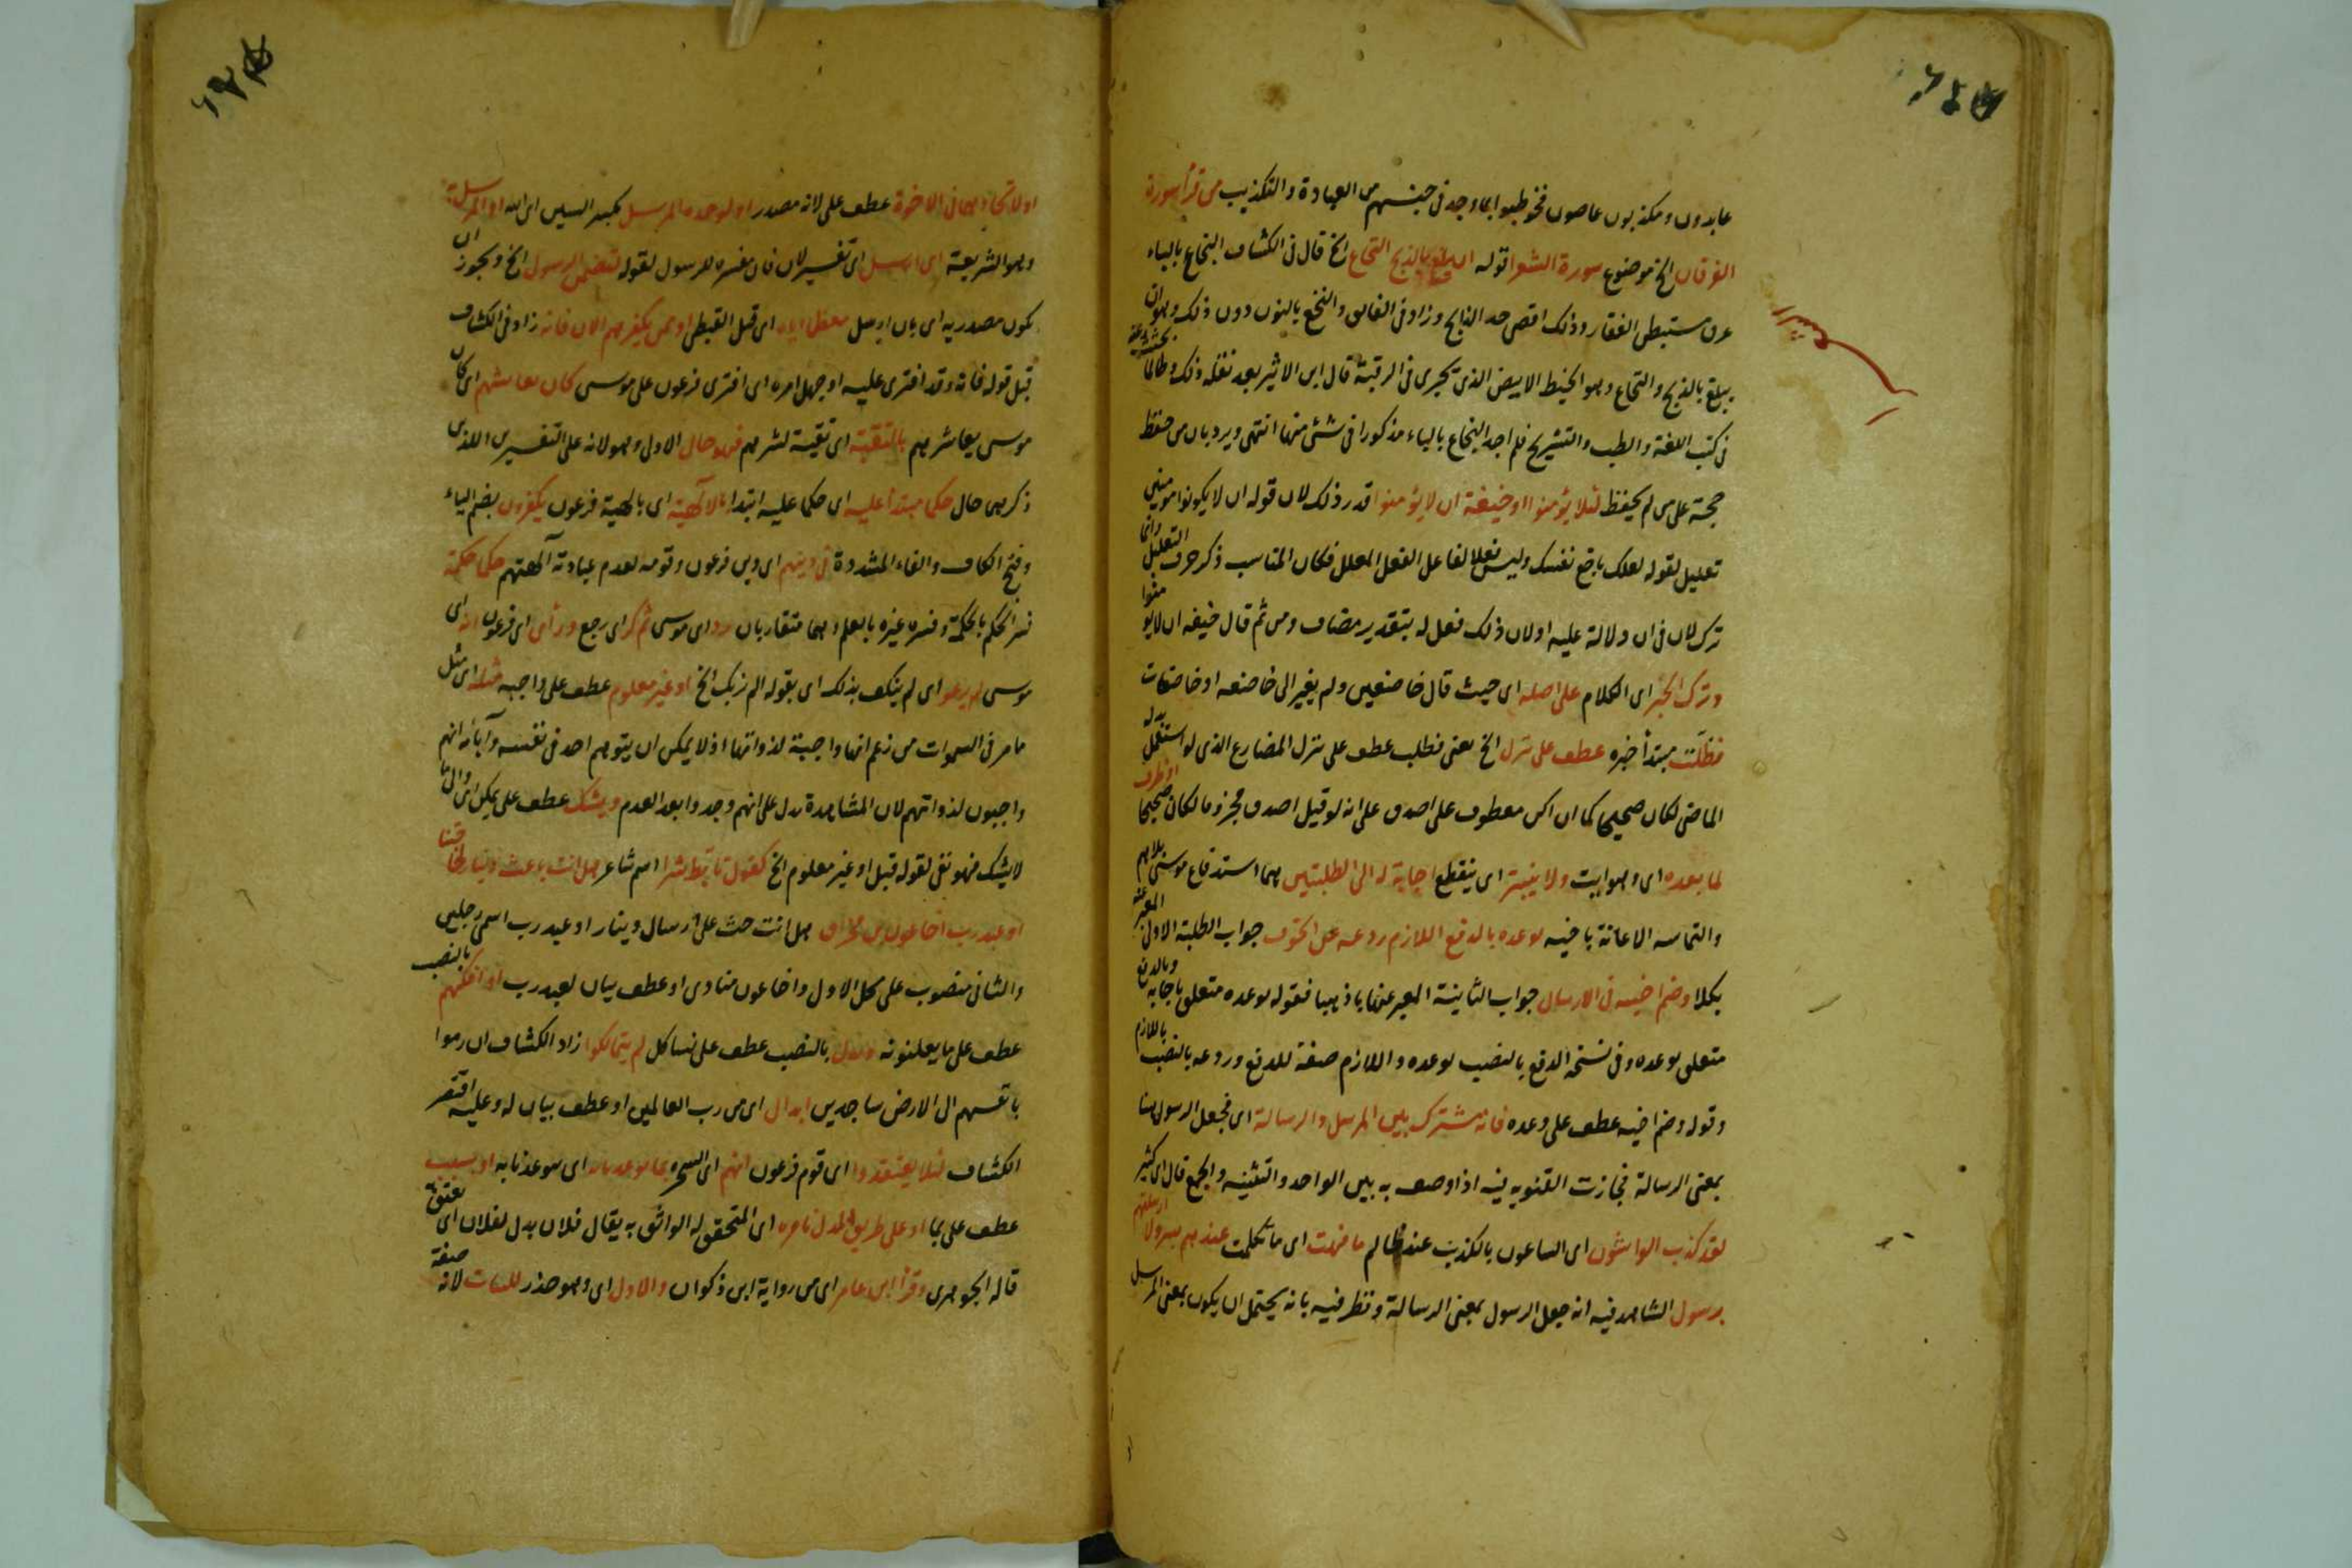 عابدون ومكذبون عاصون فخوطبوا بما وجد في جنسهم من العبادة والتكذيب من قرأ سورة
الفرقان الخ موضوع سورة الشعرا قوله ان يبلغ بالذبح النخاع الخ قال في الكشاف البخاع بالباء
عرق مستبطن الفقار وذلك اقصى حد الذابح وزاد في الفائق والنخع بالنون دون ذلك وهو ان
يبلغ بالذبح والنخاع وهو الخيط الابيض الذي يجري في الرقبة قال ابن الاثير بعد نقله ذلك وطالما بحثت عنه
في كتب اللغة والطب والتشريح فلم اجد البخاع بالباء مذكورا في شئ منها انتهى ويرد بان من حفظ
حجة على من لم يحفظ لئلا يؤمنوا او خيفة ان لا يؤمنوا قدر ذلك لان قوله ان لا يكونوا مومنين
تعليل لقوله لعلك باخع نفسك وليس فعلا لفاعل الفعل المعلل فكان المناسب ذكر حرف التعليل وانما
ترك لان في ان دلالة عليه او لان ذلك فعل له بتقدير مضاف ومن ثم قال خيفة ان لا يومنوا
وترك الخبر اى الكلام على اصله اى حيث قال خاضعين ولم يغير الى خاضعه او خاضعات
فظلّت مبتدأ خبره عطف على ننزل الخ يعنى فظلت عطف على ننزل المضارع الذى لو استعمل بدله
الماضى لكان صحيحا كما ان اكن معطوف على اصدق على انه لو قيل اصدق مجزوما لكان صحيحا او ظرف
لما بعده اى وهو ابنت ولا ينبتر اى ينقطع اجابة له الى الطلبتين هما استدفاع موسى بلاهم
والتماسه الاعانة باخيه بوعده بالدفع اللازم ردعه عن الخوف جواب الطلبة الاولى المعبر عنه
بكلا وضم اخيه في الارسال جواب الثانية المعبر عنها باذهبا فقوله بوعده متعلق باجابة وبالدفع
متعلق بوعده وفي نسخة الدفع بالنصب بوعده واللازم صفة للدفع وردعه بالنصب باللازم
وقوله وضم اخيه عطف على وعده فانه مشترك بين المرسل والرسالة اى فجعل الرسول هنا
بمعنى الرسالة فجازت التسوية فيه اذا وصف به بين الواحد والتثنيه والجمع قال اى كثير
لقد كذب الواشون اى الساعون بالكذب عند ظالم ما فهت اى ما تكلمت عندهم بسر ولا ارسلتهم
برسول الشاهد فيه انه جعل الرسول بمعنى الرسالة ونظر فيه بانه يحتمل ان يكون بمعنى المرسل
او لاتحادهما في الاخوة عطف على لانه مصدر او لوحدة المرسل بكسر السين اى الله او المرسل به
وهو الشريعة اى ارسل اى تفسير لان فان مفسره للرسول لقوله لتضمن الرسول الخ ويجوز ان
يكون مصدرية اى بان ارسل اى قبل القبطى او ممن يكفرهم الان فانه زاد في الكشاف
قبل قوله فانه وقد افترى عليه او جهل امره اى افترى فرعون على موسى كان يعايشهم اى كان
موسى يعاشرهم بالتقية اى تقية لشرهم فهو حال الاولى وهو لانه على التفسيرين اللذين
ذكرهما حال حكما مبتدأ عليه اى حكما عليه ابتدا بالآلهية اى بالهية فرعون يكفرون بضم الياء
وفتح الكاف والفاء المشددة في دينهم اى دين فرعون وقومه لعدم عبادته آلهتهم حكما حكمة
فسر الحكم بالحكمة وفسره غيره بالعلم وهما متقاربان اى موسى ثم كر اى رجع ورأى اى فرعون انه اى
موسى لم يرعو اى لم ينكف بذلك اى بقوله الم نربك الخ او غير معلوم عطف على واجبه مثله اى مثل
ما مر في السموات من زعم انها واجبة لذواتها اذ لا يمكن ان يتوهم احد في نفسه وآبائه انهم
واجبون لذواتهم لان المشاهدة تدل على انهم وجدوا بعد العدم ويشك عطف على يمكن اى والى ما
لا يشك فهو نفى لقوله قبل او غير معلوم الخ كقول تابط شرا اسم شاعر هل انت باعث دينار لحاجتنا
او عبد رب اخا عون بن مخراق هل انت حث على ارسال دينار او عبد رب اسمى رجلين
والثانى منصوب على محل الاول واخا عون منادى او عطف بيان لعبد رب او افكهم بالنصب
عطف على ما يقلبونه بالنصب عطف على نساكل لم يتمالكوا زاد الكشاف ان رموا
بانفسهم الى الارض ساجدين ابدال اى من رب العالمين او عطف بيان له وعليه اقتصر
الكشاف لئلا يعتقدوا اى قوم فرعون انهم اى السحره او بسبب
عطف على بما او على طريق المدل بامره اى المتحقق له الواثق به يقال فلان يدل بفلان اى يثق
قاله الجوهرى وقرأ ابن عامر اى من رواية ابن ذكوان والاول اى وهو حذر للثبات لانه صفة